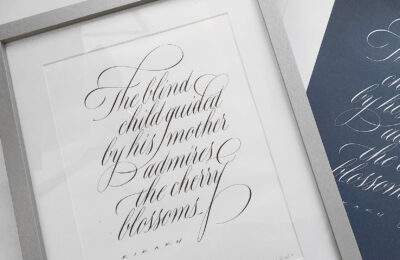 The blind
child guided
by his mother
admires
the cherry
blossoms.
KIKAKU